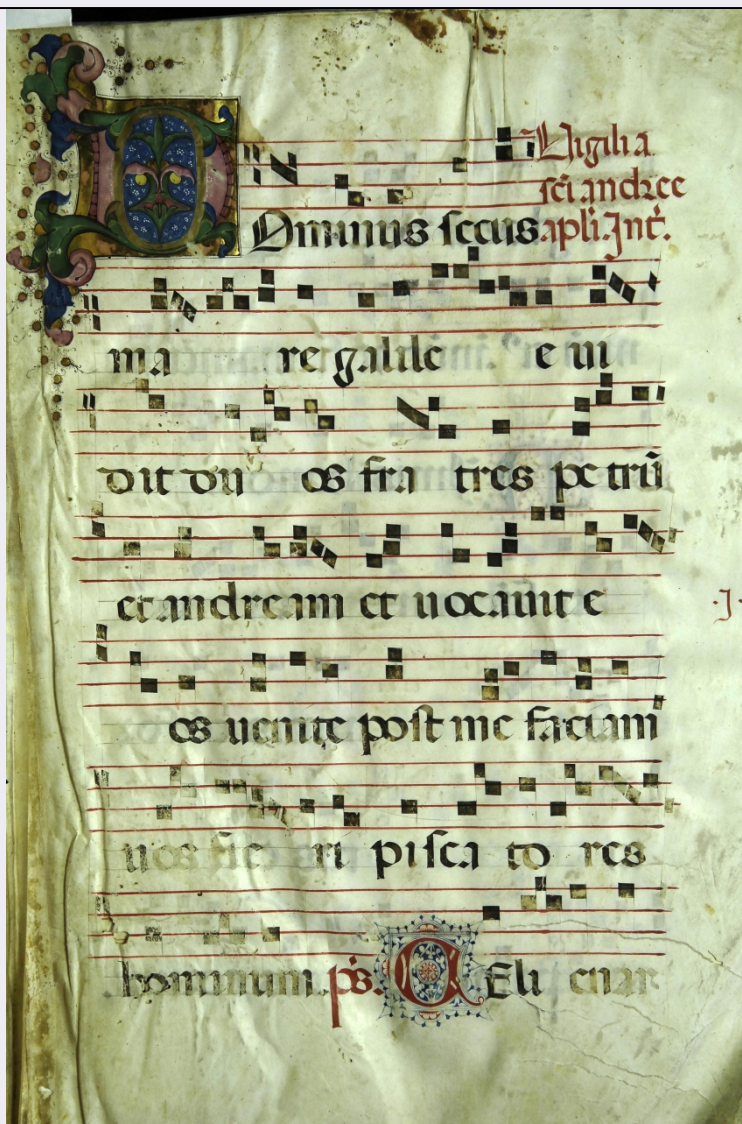 Vigilia
sci andree
DOminus secus apli. Int.
ma re galilee e ui
dit du os fra tres petrū
et andream et uocauit e
os uenite post me faciam
uos fie ri pisca to res
hominum. ps. CEli enar